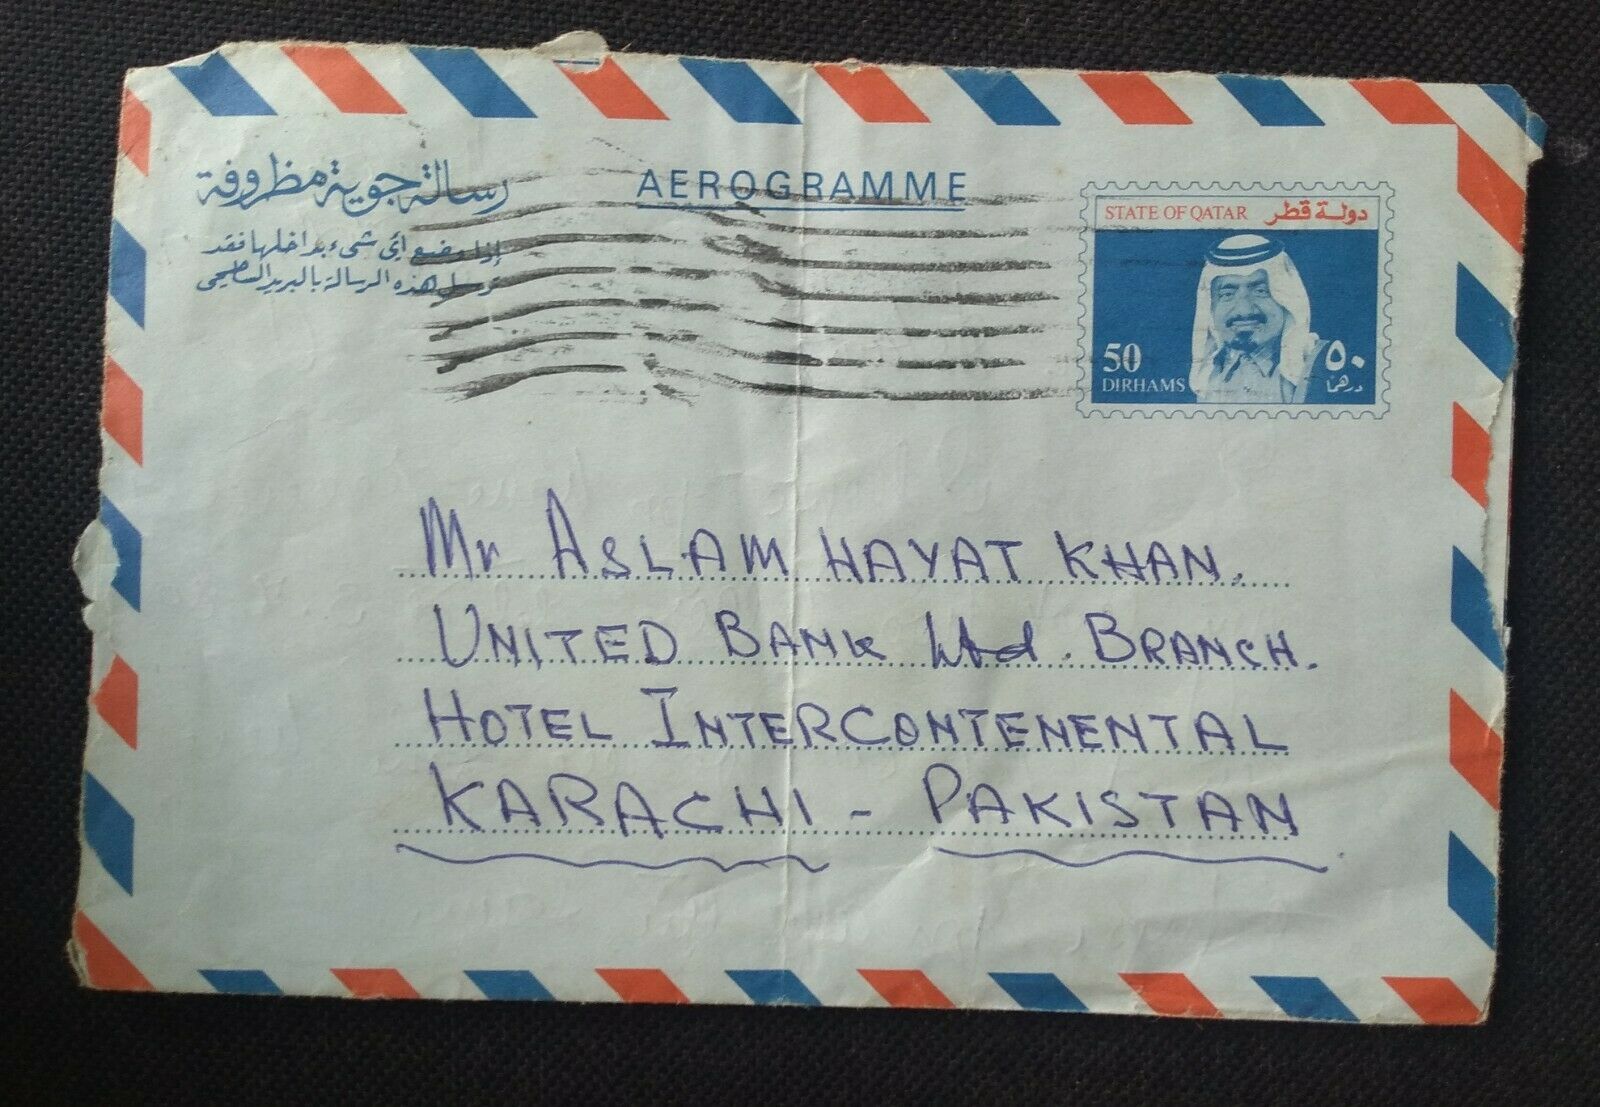 رسالة جوية مظروفة
إذا وضع أي شيء بداخلها فقد
ترسل هذه الرسالة بالبريد السطحي
AEROGRAMME
STATE OF QATAR دولة قطر
50 ٥٠
DIRHAMS درهما
Mr ASLAM HAYAT KHAN.
UNITED BANK Ltd. BRANCH.
HOTEL INTERCONTENENTAL
KARACHI - PAKISTAN.